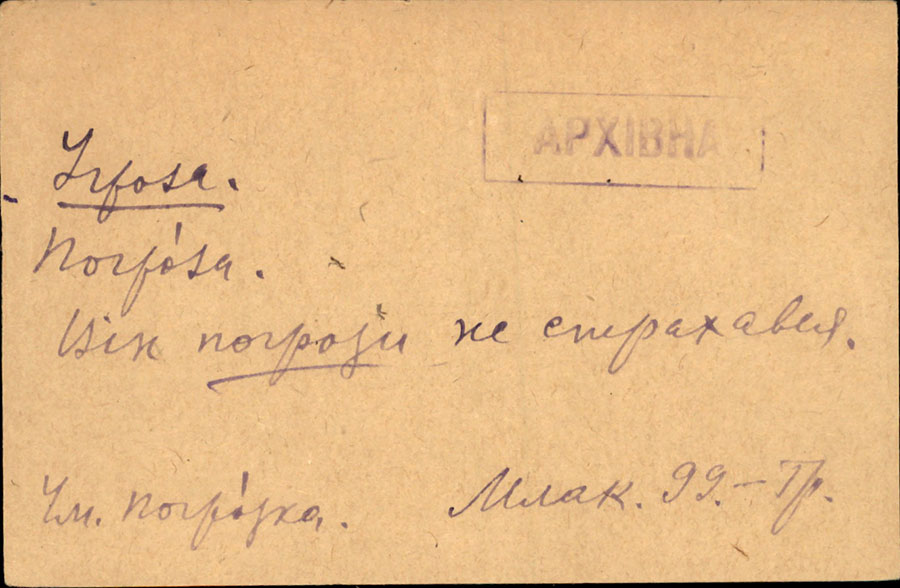 АРХІВНА
Угроза.
Погро́за.
Він погрози не страхався.
Ум. Погро́зка. Млак. 99. – Гр.